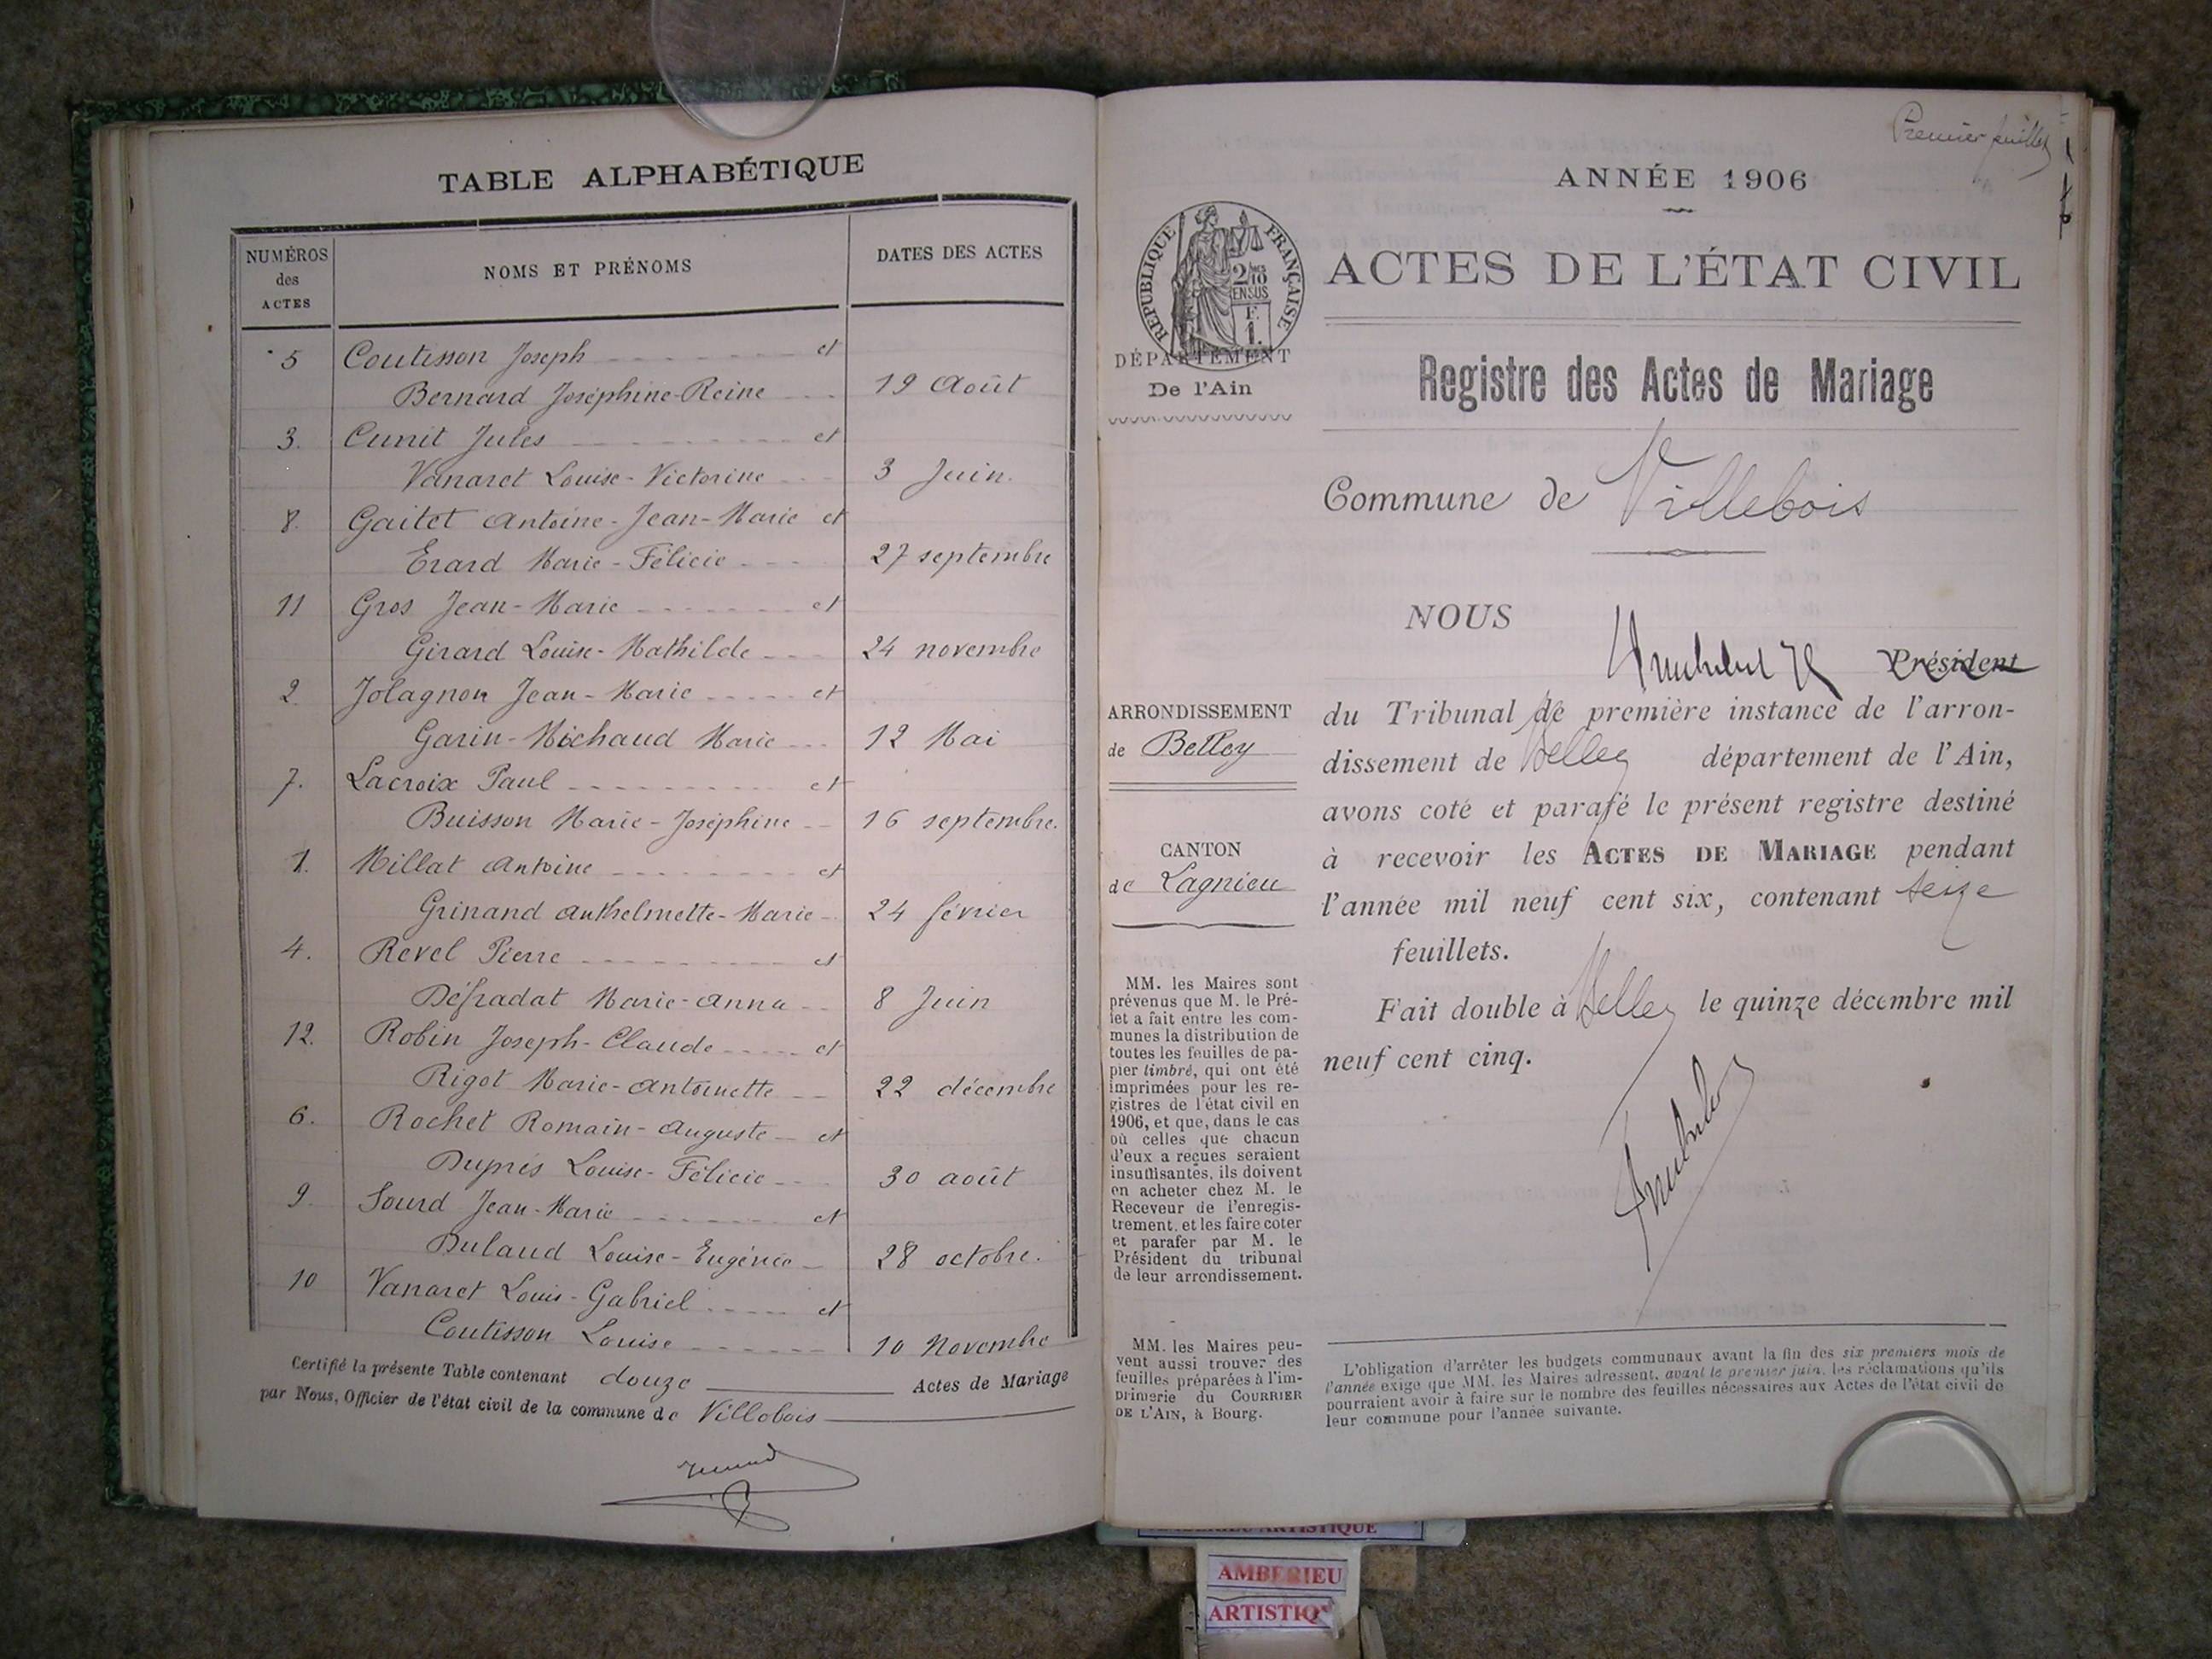 TABLE ALPHABÉTIQUE
NUMÉROS
des
ACTES
NOMS ET PRÉNOMS
DATES DES ACTES
5 Coutisson Joseph et
Bernard Joséphine-Reine 19 Août
3. Cunit Jules et
Vanaret Louise-Victorine 3 Juin.
8. Gaitet Antoine-Jean-Marie et
Erard Marie-Félicie 27 septembre
11 Gros Jean-Marie et
Girard Louise-Mathilde 24 novembre
2 Jolagnon Jean-Marie et
Garin-Michaud Marie 12 Mai
7. Lacroix Paul et
Buisson Marie-Joséphine 16 septembre.
1. Millat Antoine et
Grinand Anthelmette-Marie 24 février
4. Revel Pierre et
Défradat Marie-Anna 8 Juin
12. Robin Joseph-Claude et
Rigot Marie-Antoinette 22 décembre
6. Rochet Romain-Auguste et
Duprés Louise-Félicie 30 août
9. Sourd Jean-Marie et
Dulaud Louise-Eugénie 28 octobre.
10 Vanaret Louis-Gabriel et
Coutisson Louise 10 Novembre
Certifié la présente Table contenant douze Actes de Mariage
par Nous, Officier de l'état civil de la commune de Villebois
Premier feuillet
ANNÉE 1906
RÉPUBLIQUE FRANÇAISE
2/10
EN SUS
F.
1.
DÉPARTEMENT
De l'Ain
ACTES DE L'ÉTAT CIVIL
Registre des Actes de Mariage
Commune de Villebois
NOUS
Président
ARRONDISSEMENT
de Belley
CANTON
de Lagnieu
du Tribunal de première instance de l'arron-
dissement de Belley département de l'Ain,
avons coté et parafé le présent registre destiné
à recevoir les ACTES DE MARIAGE pendant
l'année mil neuf cent six, contenant seize
feuillets.
Fait double à Belley le quinze décembre mil
neuf cent cinq.
MM. les Maires sont
prévenus que M. le Pré-
fet a fait entre les com-
munes la distribution de
toutes les feuilles de pa-
pier timbré, qui ont été
imprimées pour les re-
gistres de l'état civil en
1906, et que, dans le cas
où celles que chacun
d'eux a reçues seraient
insuffisantes, ils doivent
en acheter chez M. le
Receveur de l'enregis-
trement, et les faire coter
et parafer par M. le
Président du tribunal
de leur arrondissement.
MM. les Maires peu-
vent aussi trouver des
feuilles préparées à l'im-
primerie du COURRIER
DE L'AIN, à Bourg.
L'obligation d'arrêter les budgets communaux avant la fin des six premiers mois de
l'année exige que MM. les Maires adressent, avant le premier juin, les réclamations qu'ils
pourraient avoir à faire sur le nombre des feuilles nécessaires aux Actes de l'état civil de
leur commune pour l'année suivante.
ARTISTIQUE
AMBERIEU
ARTISTIQ